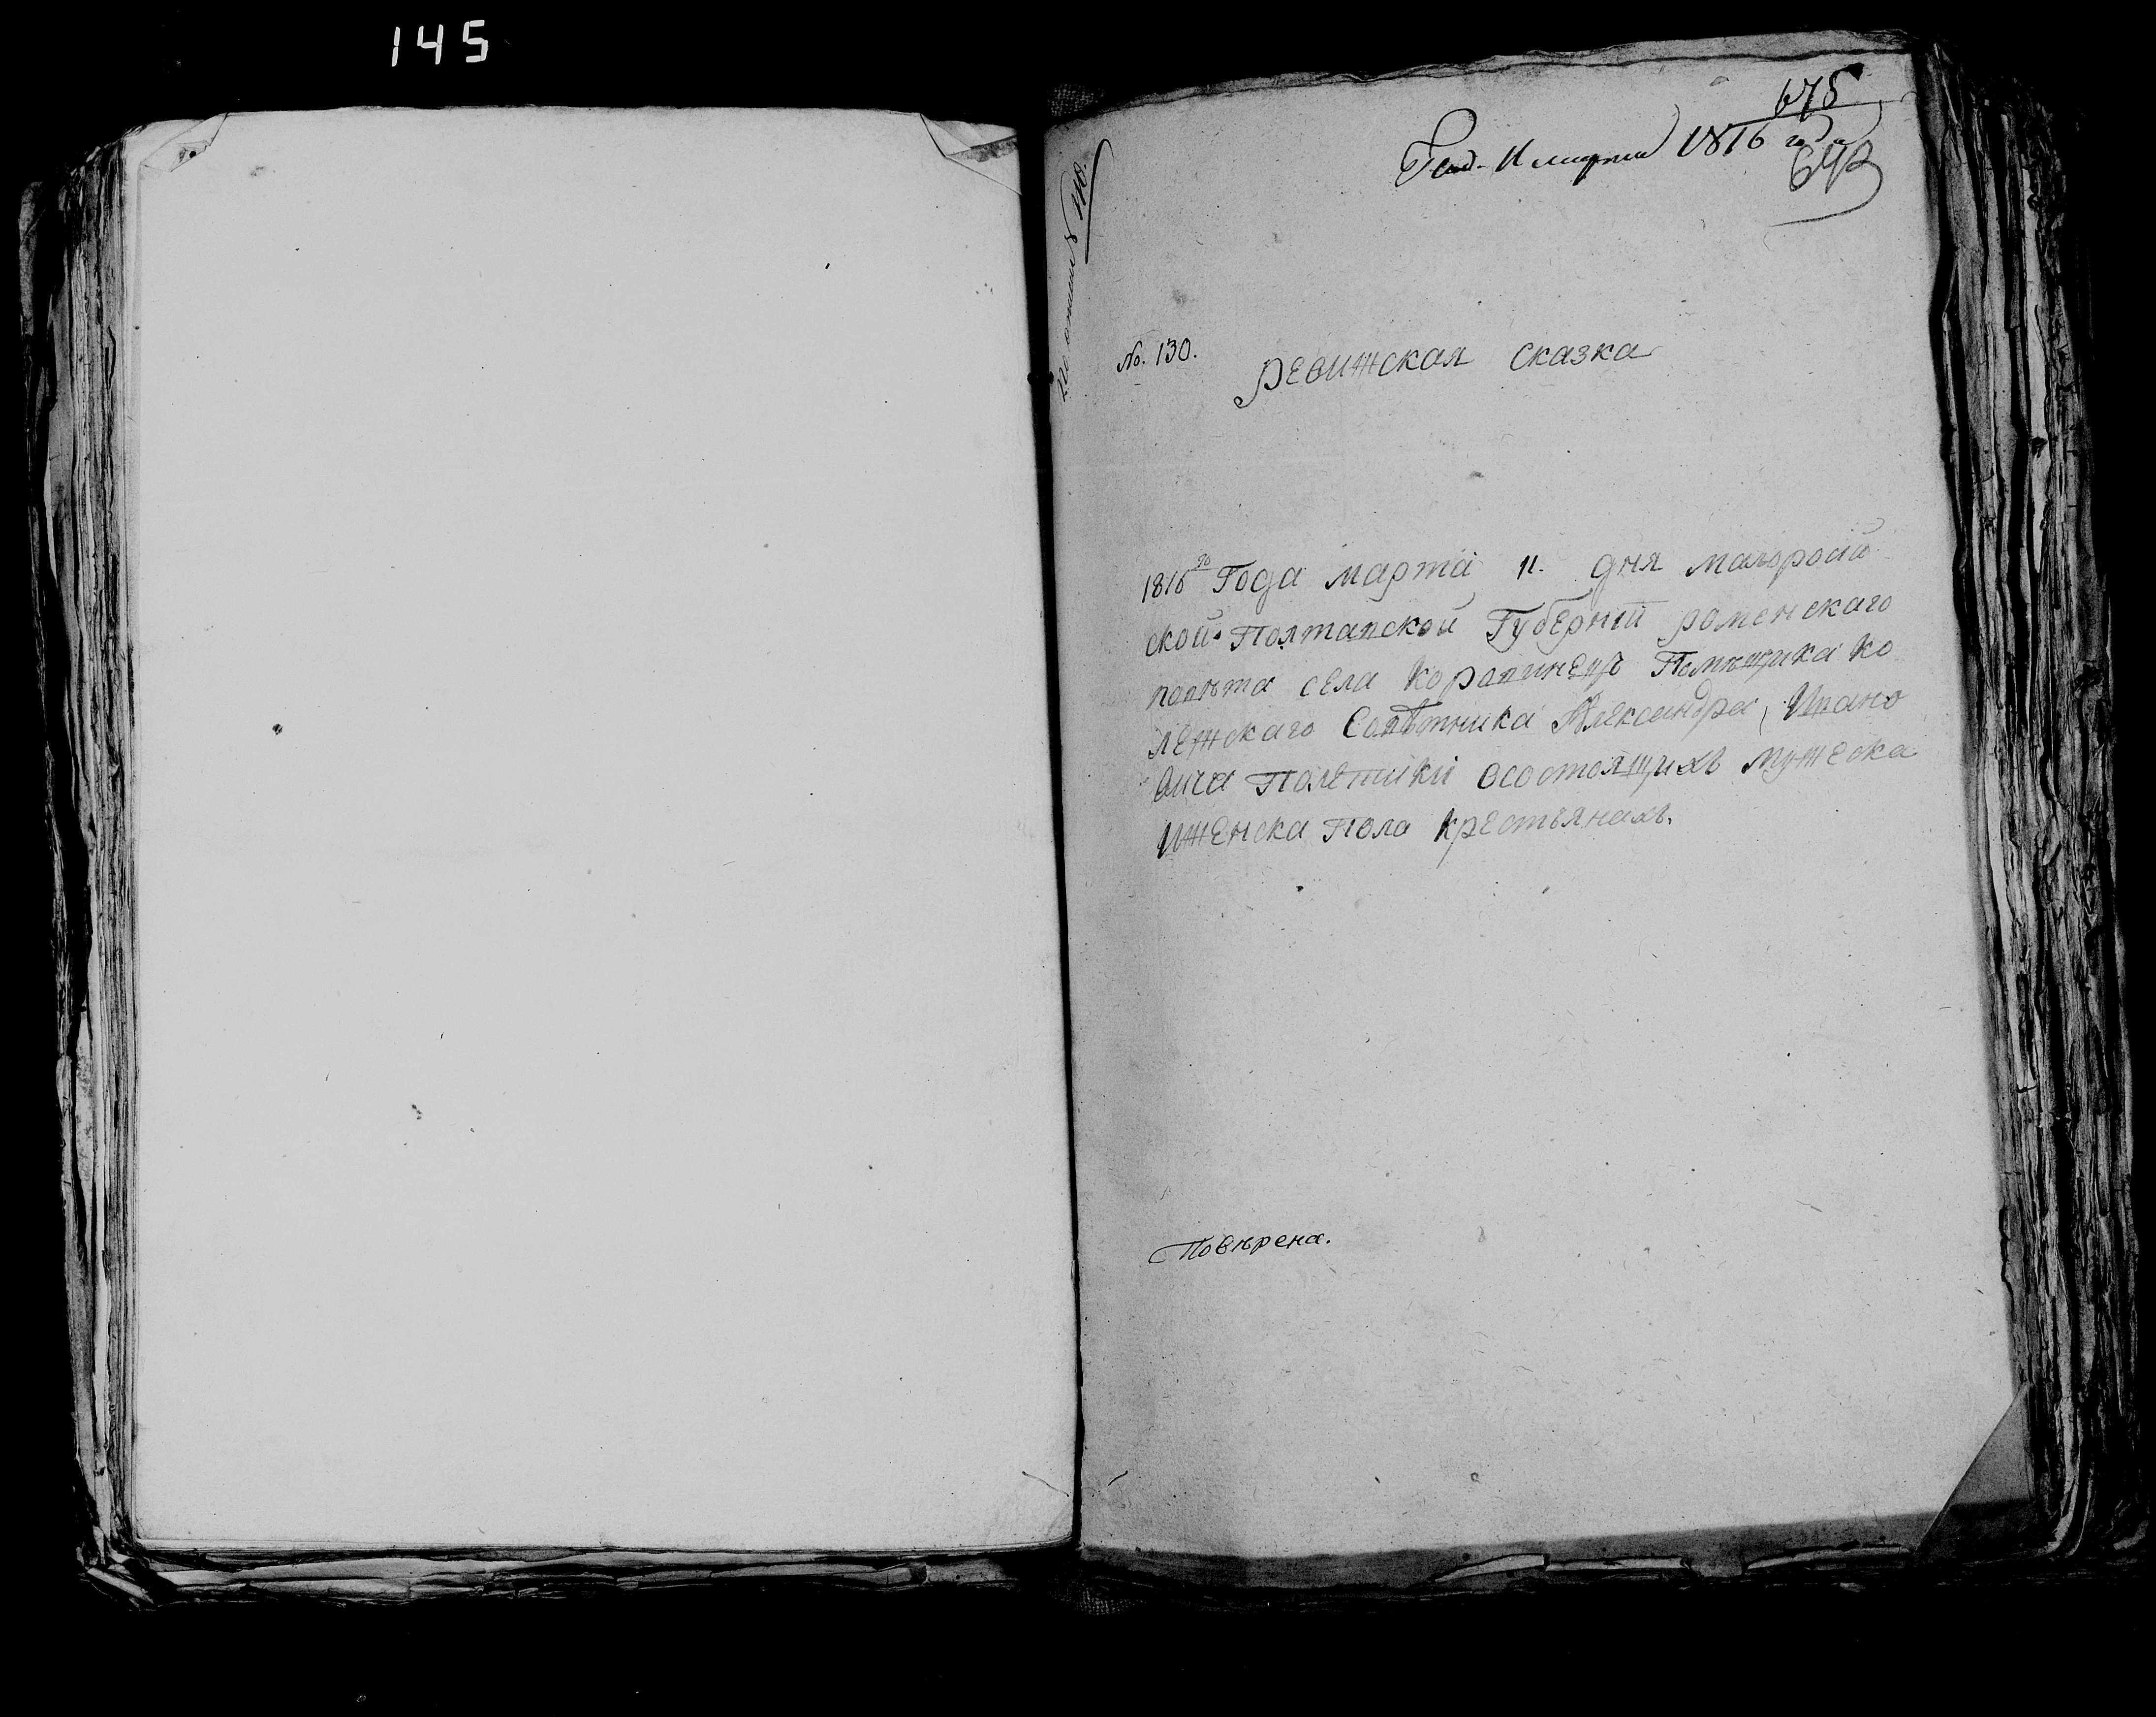 145
675
11 марта 1816 года
No. 130.
Ревижская сказка
1816го Года марта 11. дня малороссій
ской Полтавской Губерніи роменскаго
повѣта села Коровинецъ Помѣщика Ко
лежскаго Совѣтника Александра Ивано
вича Полетики осостоящихъ мужеска
иженска Пола крестьянахъ.
Повѣрена.